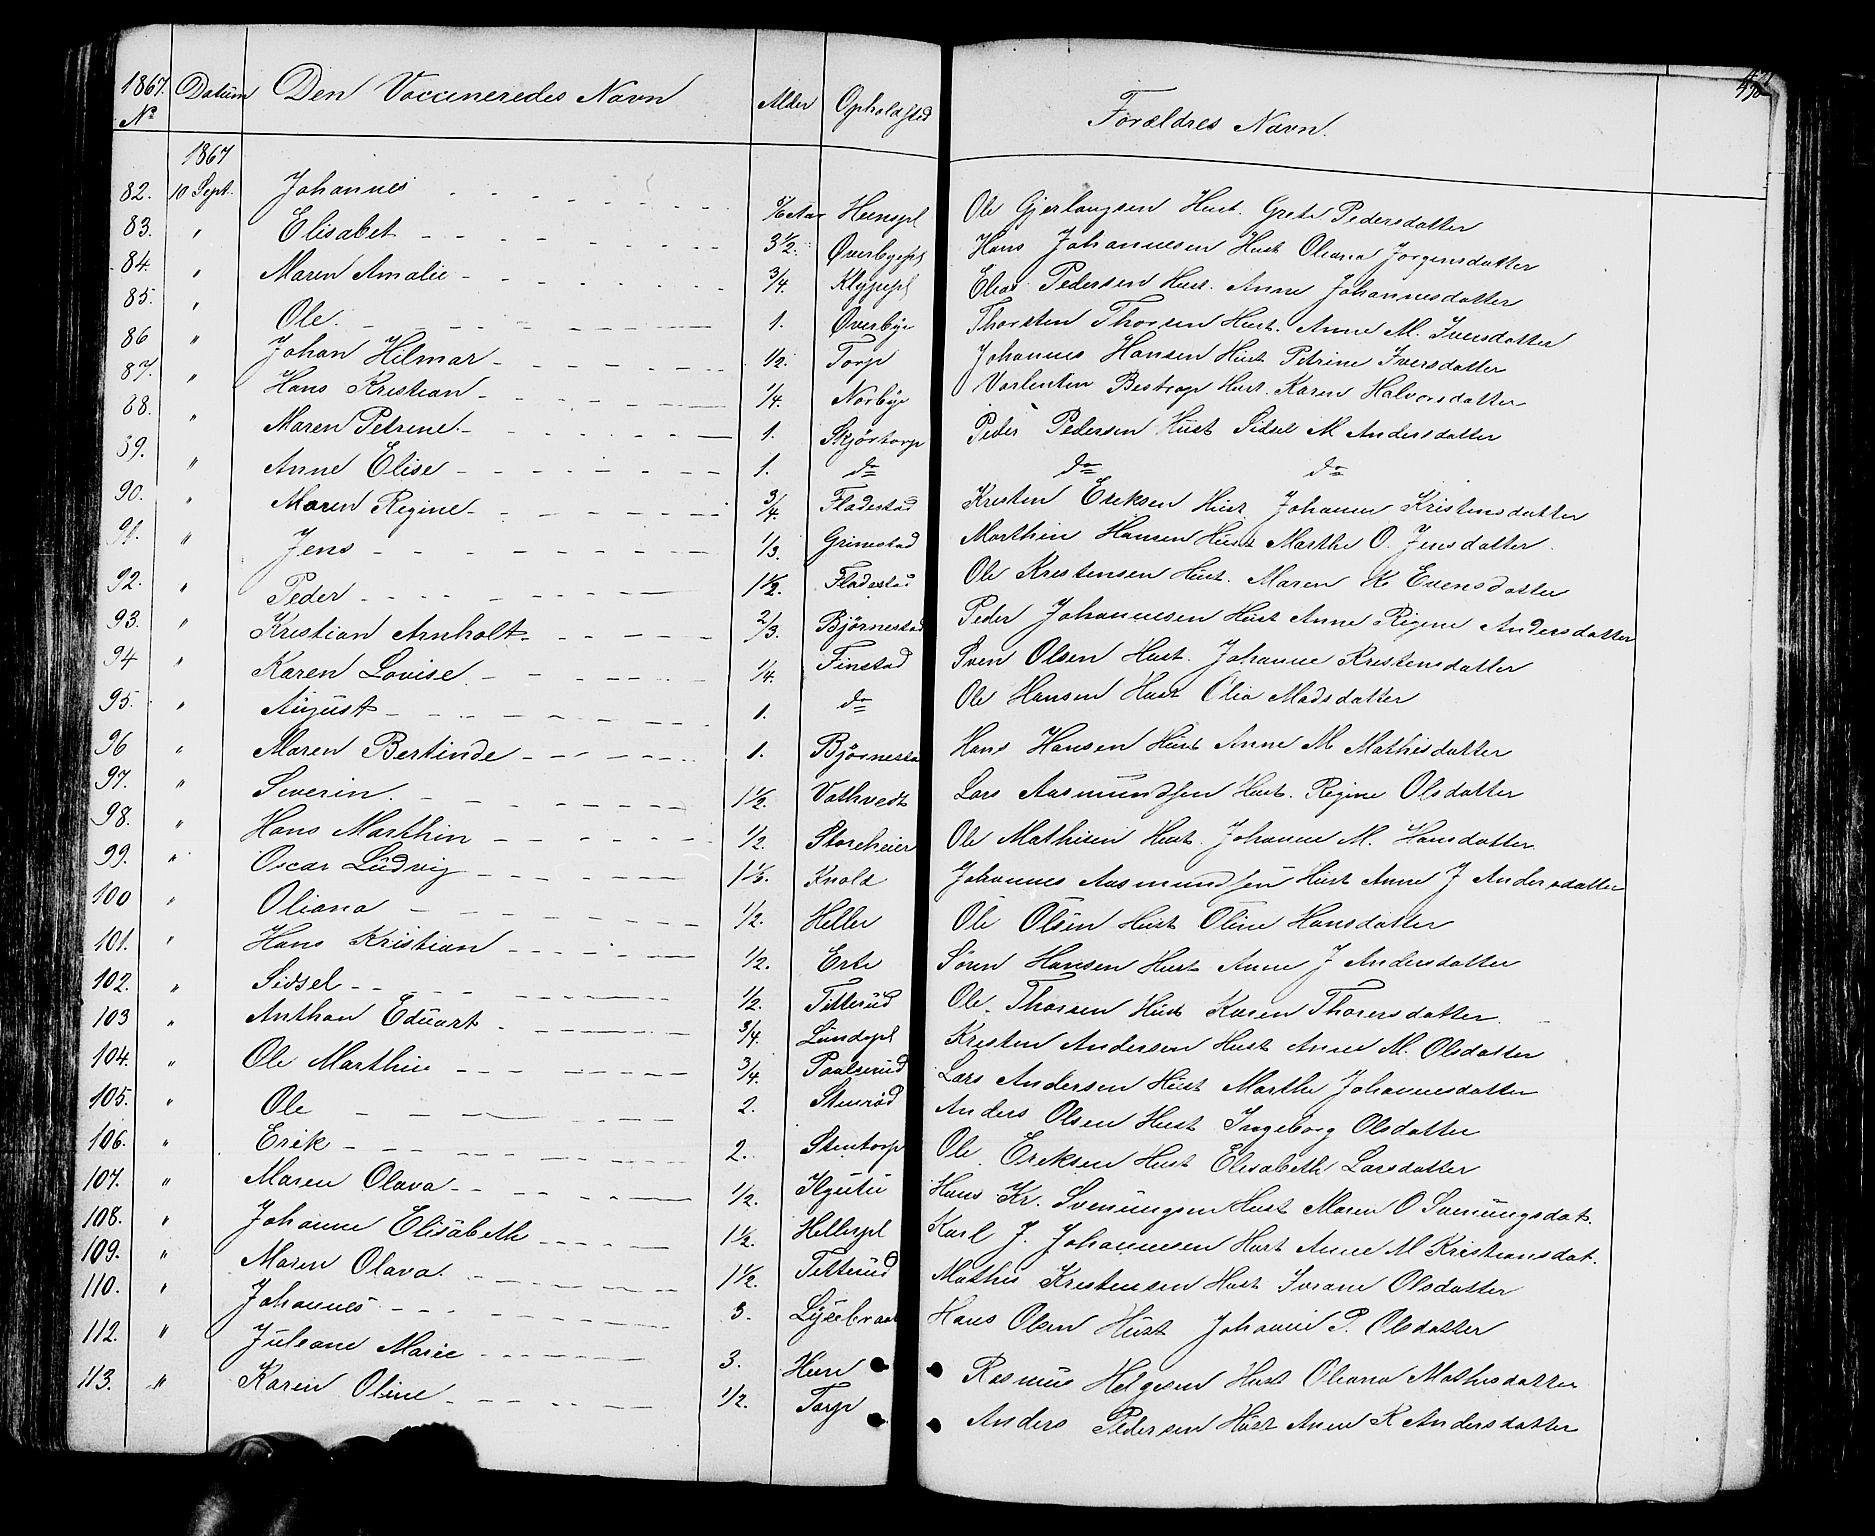 1867. Datum Den Vaccineredes Navn Alder Opholdssted Forældres Navn.
No
1867
82. 10 Sept. Johannes Hunspl Ole Gjerlaugsen Hust. Grete Pedersdatter
83. " Elisabet 3 1/2. Øverbyepl Hans Johannesen Hust Oleana Jorgensdatter
84. " Maren Amalie 3/4. Klypepl Elias Pedersen Hust. Anne Johannesdatter
85. " Ole. 1. Øverbye Thorsten Thorsen Hust. Anne M. Iversdatter
86 " Johan Hilmar 1/2. Torp Johannes Hansen Hust Petrine Iversdatter
87. " Hans Kristian 1/4. Norbye Varlentin Bestrop Hust. Karen Halvorsdatter
88. " Maren Petrine 1. Skjørtorp Peder Pedersen Hust Sidsel M Andersdatter
89. " Anne Elise 1. do do do
90. " Maren Regine 3/4. Fladestad Kristen Eriksen Hust Johanne Kristensdatter
91. " Jens 1/3. Grimestad Marthin Hansen Hust Marthe O. Jensdatter.
92. " Peder 1 1/2. Fladestad Ole Kristensen Hust. Maren K. Evensdatter
93. " Kristian Arnholt 2/3. Bjørnestad Peder Johannesen Hust Anne Regine Andersdatter
94 " Karen Lovise 1/4. Finstad Sven Olsen Hust. Johanne Kristensdatter
95. " August 1. do Ole Hansen Hust Olia Madsdatter
96 " Maren Bertinde 1. Bjørnestad Hans Hansen Hust Anne M Mathisdatter
97. " Severin. 1 1/2. Vathvedt Lars Aasmundsen Hust. Regine Olsdatter
98. " Hans Marthin 1/2. Storeheier Ole Mathisen Hust. Johanne M. Hansdatter.
99. " Oscar Ludvig Knold Johannes Aasmundsen Hust Anne J Andersdatter
100 " Oliana 1/2. Heller Ole Olsen Hust Oline Hansdatter
101. " Hans Kristian 1/2. Erte Søren Hansen Hust Anne J Andersdatter
102. " Sidsel 1/2. Titterud Ole Thorsen Hust Karen Thorersdatter.
103 " Anthon Eduart 3/4. Lundepl Kristen Andersen Hust Anne M. Olsdatter
104. " Ole Marthin 3/4. Paulsrud Lars Andersen Hust Marthe Johannesdatter
105. " Ole 2. Stenrød Anders Olsen Hust Ingeborg Olsdatter
106. " Erik 2. Stentorp Ole Ereksen Hust Elisabeth Larsdatter
107. " Maren Olava 1/2. Hans Kr. Svenungsen Hust Maren O Svenungsdat.
108. " Johanne Elisabeth 1 1/2. Hellerpl Karl J. Johannesen Hust Anne M Kristiansdat.
109. " Maren Olava. 1 1/2. Titterud Mathis Kristensen Hust Ivrane Olsdatter
110. " Johannes 3. Lysebraat Hans Olsen Hust Johanne P. Olsdatter
112. " Juleane Marie 3. Hun Rasmus Helgesen Hust Oleana Mathisdatter
113. " Karen Oline 1/2. Torp Anders Pedersen Hust Anne K Andersdatter